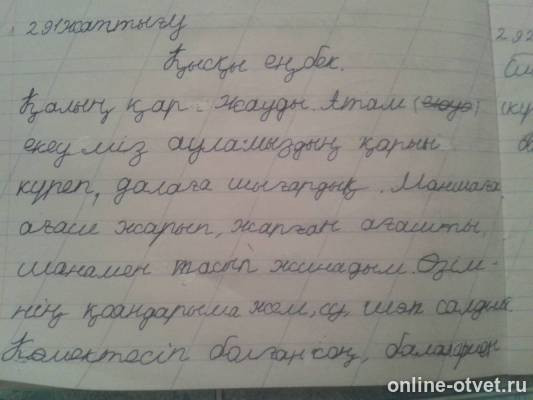 291 жаттығу
Қысқы еңбек.
Қалың қар жауды. Атам
екеуміз ауламыздың қарын
күреп, далаға шығардық. Моншаға
ағаш жарып, жарған ағашты
шанамен тасып жинадым. Өзім-
нің қояндарыма жем, су, шөп салдық
Көмектесіп болғансоң, балалармен
292
online-otvet.ru